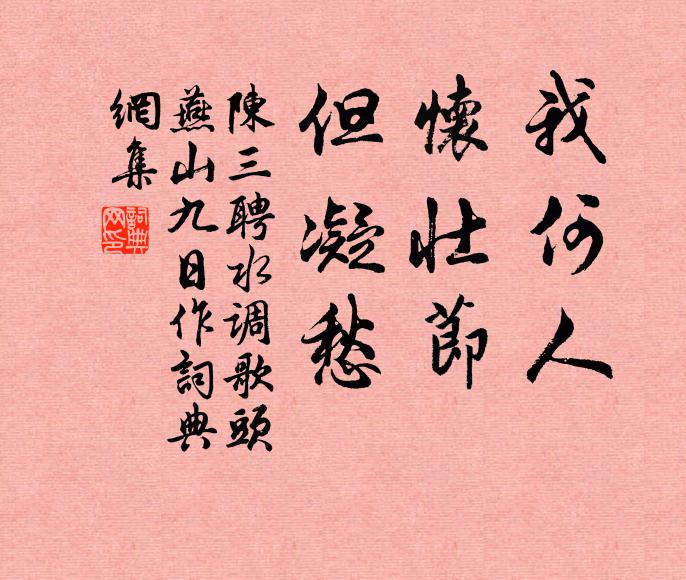 我何人
懷壮節
但凝愁
陳三聘水调歌頭
燕山九日作詞典
網集
詞典
网印